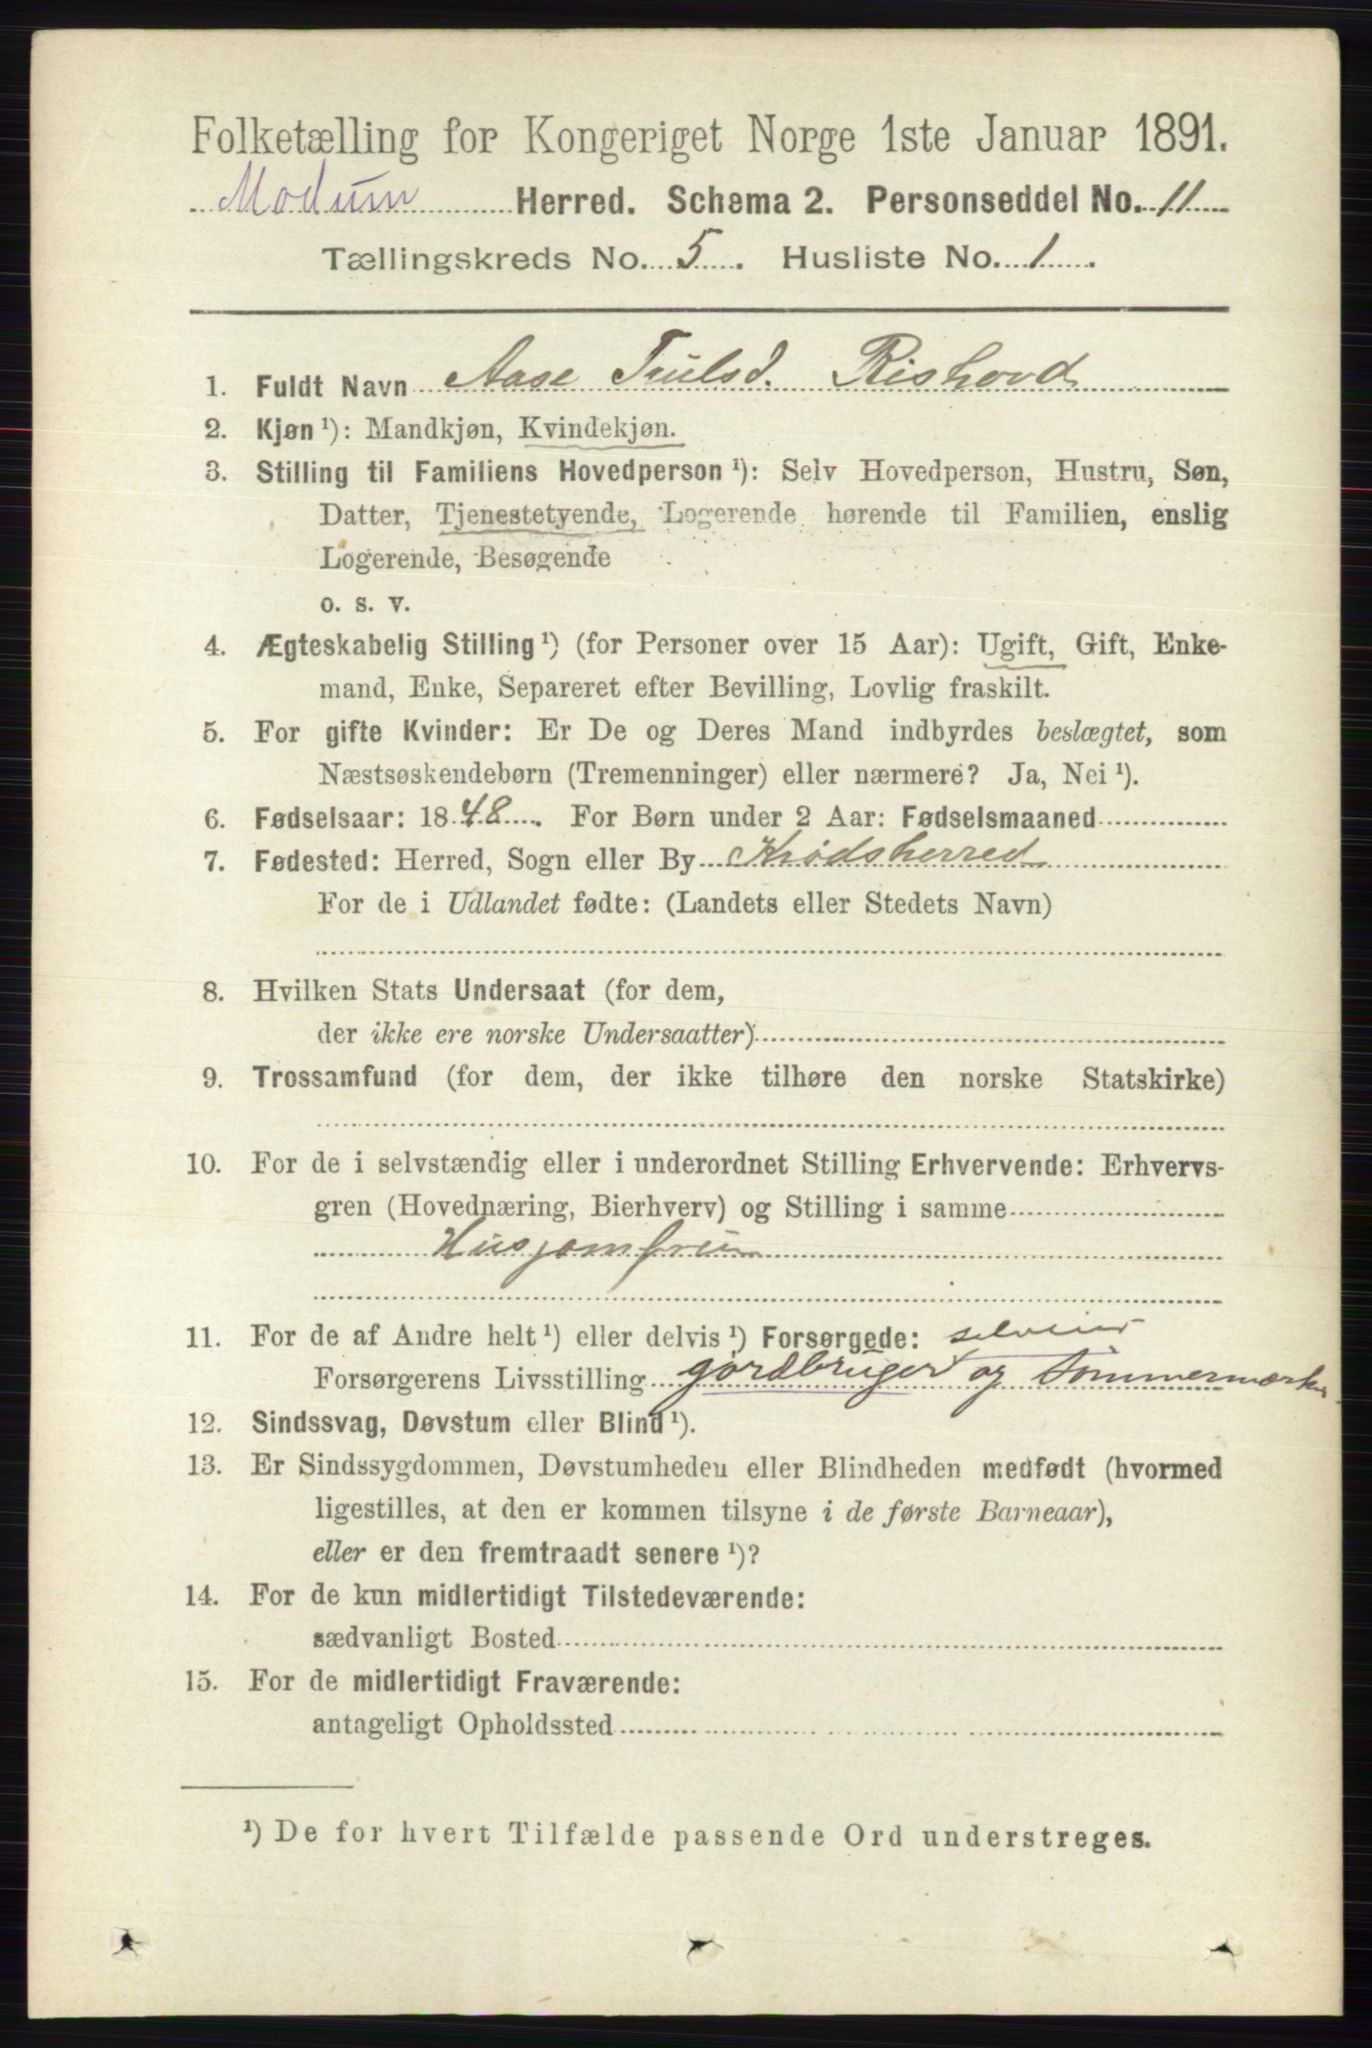 Folketælling for Kongeriget Norge 1ste Januar 1891.
Modum Herred. Schema 2. Personseddel No. 11
Tællingskreds No. 5. Husliste No. 1.
1. Fuldt Navn Aase Trulsd. Rishovd
2. Kjøn ¹): Mandkjøn, Kvindekjøn.
3. Stilling til Familiens Hovedperson ¹): Selv Hovedperson, Hustru, Søn,
Datter, Tjenestetyende, Logerende hørende til Familien, enslig
Logerende, Besøgende
o. s. v.
4. Ægteskabelig Stilling ¹) (for Personer over 15 Aar): Ugift, Gift, Enke-
mand, Enke, Separeret efter Bevilling, Lovlig fraskilt.
5. For gifte Kvinder: Er De og Deres Mand indbyrdes beslægtet, som
Næstsøskendebørn (Tremenninger) eller nærmere? Ja, Nei ¹).
6. Fødselsaar: 1848. For Børn under 2 Aar: Fødselsmaaned
7. Fødested: Herred, Sogn eller By Krødsherred
For de i Udlandet fødte: (Landets eller Stedets Navn)
8. Hvilken Stats Undersaat (for dem,
der ikke ere norske Undersaatter)
9. Trossamfund (for dem, der ikke tilhøre den norske Statskirke)
10. For de i selvstændig eller i underordnet Stilling Erhvervende: Erhvervs-
gren (Hovednæring, Bierhverv) og Stilling i samme
Husjomfru
11. For de af Andre helt ¹) eller delvis ¹) Forsørgede: selveier
Forsørgerens Livsstilling gordbruger og tømmermærker
12. Sindssvag, Døvstum eller Blind ¹).
13. Er Sindssygdommen, Døvstumheden eller Blindheden medfødt (hvormed
ligestilles, at den er kommen tilsyne i de første Barneaar),
eller er den fremtraadt senere ¹)?
14. For de kun midlertidigt Tilstedeværende:
sædvanligt Bosted
15. For de midlertidigt Fraværende:
antageligt Opholdssted
¹) De for hvert Tilfælde passende Ord understreges.